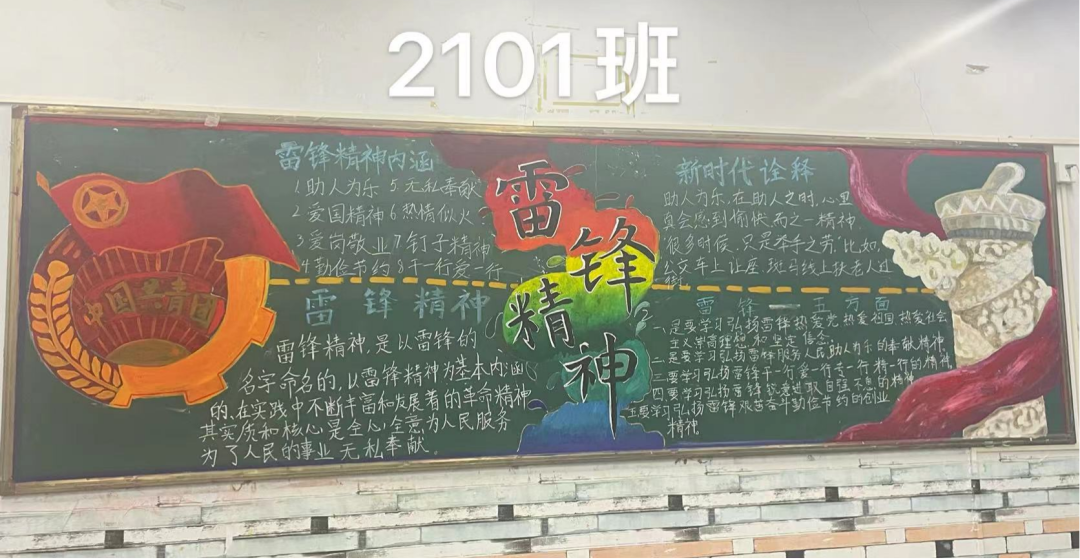 2101班
中国共青团
雷锋精神内涵
1助人为乐 5无私奉献
2爱国精神 6热情似火
3爱岗敬业 7钉子精神
4勤俭节约 8干一行爱一行
雷锋精神
雷锋精神,是以雷锋的
名字命名的,以雷锋精神为基本内涵
的,在实践中不断丰富和发展着的革命精神
其实质和核心是全心全意为人民服务
为了人民的事业无私奉献.
雷锋精神
新时代诠释
助人为乐,在助人之时,心里
自会感到愉快而之一精神
很多时候,只是牵手之劳,比如,
公交车上让座,斑马线上扶老人过
街
雷锋一五方面
一是要学习弘扬雷锋热爱党 热爱祖国 热爱社会
主义崇高理想和坚定信念
二是要学习弘扬雷锋服务人民助人为乐的奉献精神
三要学习弘扬雷锋干一行爱一行专一行精一行的精神
四要学习弘扬雷锋锐意进取自强不息的精神
五要学习弘扬雷锋艰苦奋斗勤俭节约的创业
精神